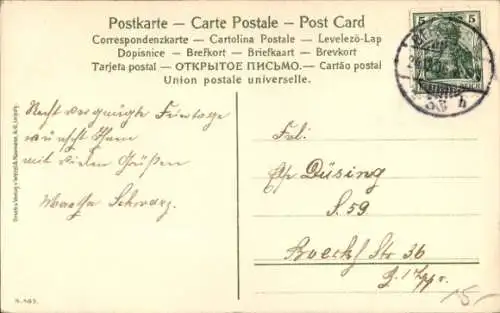 Postkarte — Carte Postale — Post Card
Correspondenzkarte — Cartolina Postale — Levelező-Lap
Dopisnice — Brefkort — Briefkaart — Brevkort
Tarjeta postal — ОТКРЫТОЕ ПИСЬМО. — Cartão postal
Union postale universelle.
5 5
Recht vergnügte Feiertage
wünscht Ihnen
mit vielen Grüßen
Martha Schwarz.
Frl:
Düsing
S. 59
Boeckh Str 36